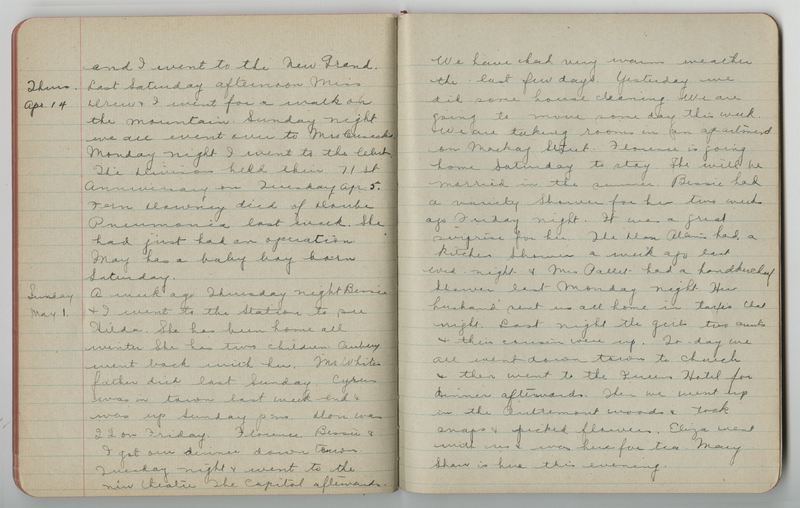 and I went to the New Grand.
Thurs. Last Saturday afternoon Miss
Apr 14 Drew & I went for a walk on
the mountain. Sunday night
we all went over to Mrs
Monday night I went to the Club
The Division held their 71st
Anniversary on Tuesday Apr 5.
Fern Downey died of Double
Pneumonia last week. She
had just had an operation
May has a baby boy born
Saturday.
Sunday A week ago Thursday night Bessie
May 1. & I went to the Station to see
Hilda. She has been home all
winter She has two children Aubrey
went back with her. Mr White's
father died last Sunday. Cyrus
was in town last week-end &
was up Sunday p.m. Don was
22 on Friday. Florence Bessie &
I got our dinner down town
Tuesday night & went to the
new theatre The Capitol afterwards.
We have had very warm weather
the last few days. Yesterday we
did some house cleaning. We are
going to move some day this week.
We are taking rooms in an apartment
on Mackay Street. Florence is going
home Saturday to stay She will be
married in the summer. Bessie had
a variety Shower for her two weeks
ago Friday night. It was a great
surprise for her. The Don had a
kitchen Shower a week ago last
Wed. night & Mrs had a handkerchief
Shower last Monday night Her
husband sent us all home in taxis that
night. Last night the girls two aunts
& their cousin were up. To-day we
all went down town to church
& then went to the Queens Hotel for
dinner afterwards. Then we went up
in the Outremont woods & took
snaps & picked flowers. Eliza went
with us & was here for tea Mary
Shaw is here this evening.